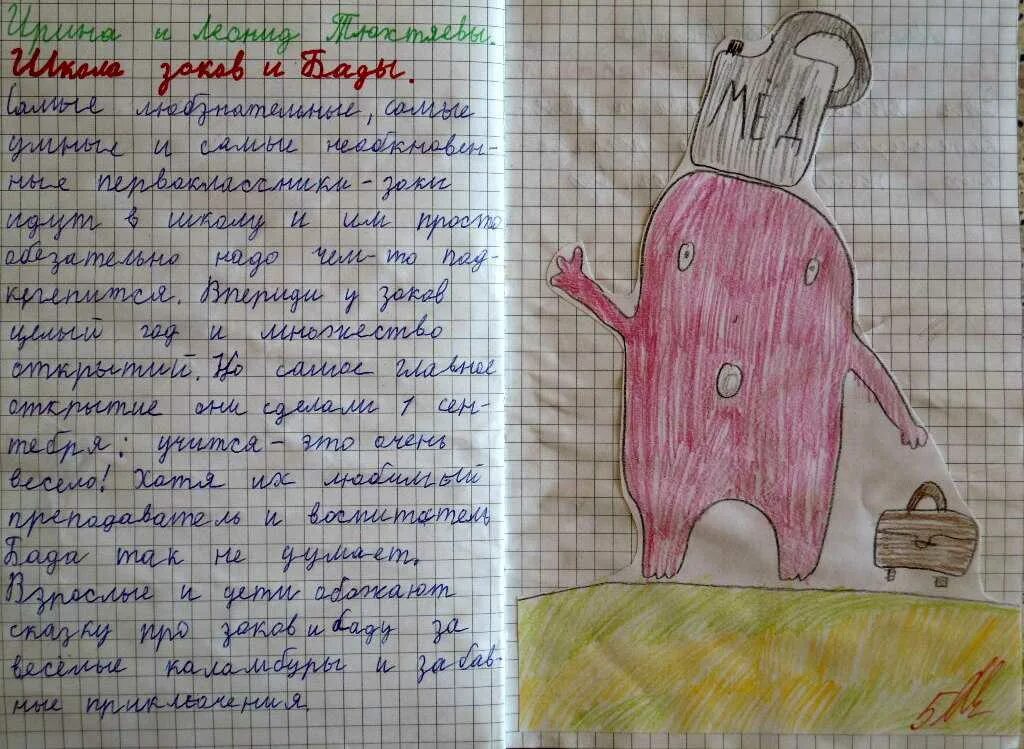 Ирина и Леонид Тюхтяевы.
Школа зоков и Бады.
Самые любзнательные, самые
умные и самые необкновен-
ные первоклассники - зоки
идут в школу и им просто
обезательно надо чем-то под-
крепится. Впериди у зоков
целый год и множество
открытий. Но самое главное
открытие они сделали 1 сен-
тебря: учится - это очень
весело! Хотя их любимый
преподаватель и воспитатель
Бада так не думает.
Взрослые и дети обожают
сказку про зоков и Баду за
весёлые каламбуры и забав-
ные приключения.
МЁД
5